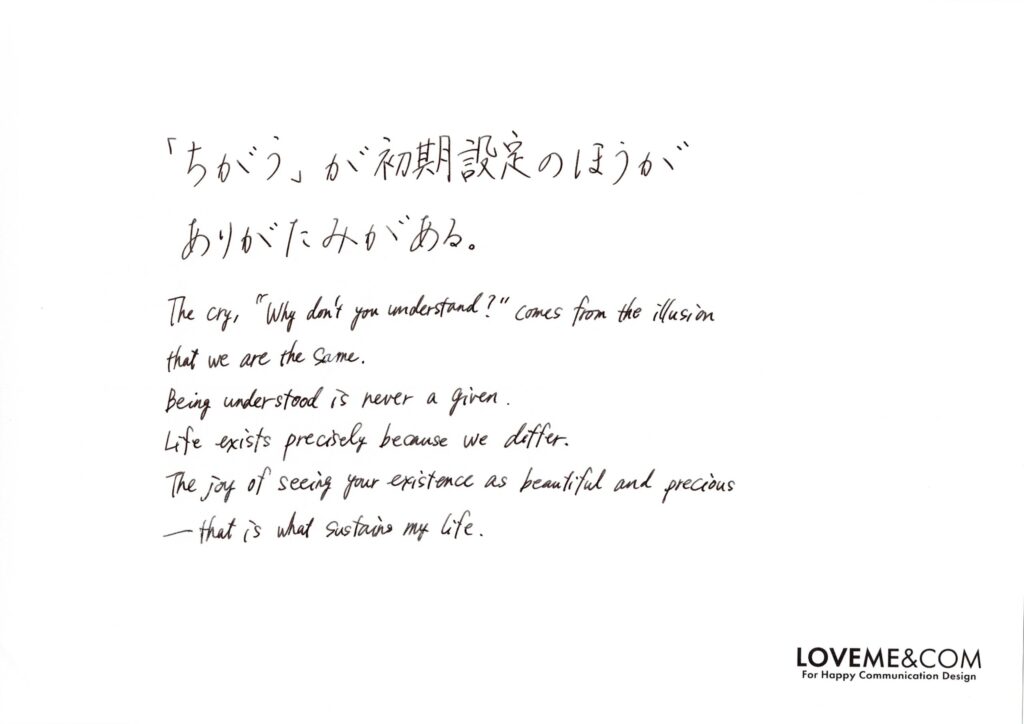 「ちがう」が初期設定のほうが
ありがたみがある。
The cry, "Why don't you understand?" comes from the illusion
that we are the same.
Being understood is never a given.
Life exists precisely because we differ.
The joy of seeing your existence as beautiful and precious
—that is what sustains my life.
LOVEME&COM
For Happy Communication Design